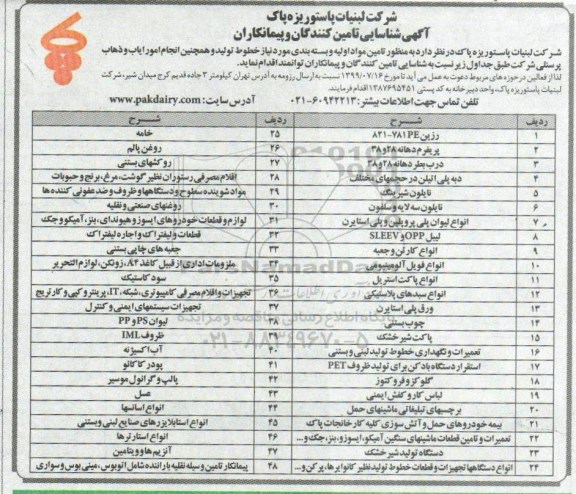 شرکت لبنیات پاستوریزه پاک
آگهی شناسایی تامین کنندگان و پیمانکاران
شرکت لبنیات پاستوریزه پاک در نظر دارد به منظور تامین مواد اولیه و بسته بندی مورد نیاز خطوط تولید و همچنین انجام امور ایاب و ذهاب
پرسنلی شرکت طبق جداول زیر نسبت به شناسایی تامین کنندگان و پیمانکاران توانمند اقدام نماید.
لذا از فعالین در حوزه های مربوط دعوت به عمل می آید تا مورخ ۱۳۹۹/۰۷/۱۶ نسبت به ارسال رزومه به آدرس تهران کیلومتر ۳ جاده قدیم کرج میدان شیر، شرکت
لبنیات پاستوریزه پاک، واحد دبیرخانه به کد پستی ۱۳۸۷۶۹۵۴۵۱ اقدام فرمایند.
تلفن تماس جهت اطلاعات بیشتر: ۶۰۹۴۲۲۱۳-۰۲۱ آدرس سایت: www.pakdairy.com
ردیف شرح ردیف شرح
۱ رزین PE ۷۸۱-۸۲۱ ۲۵ خامه
۲ پریفرم دهانه ۲۸ و ۳۸ ۲۶ روغن پالم
۳ درب بطر دهانه ۲۸ و ۳۸ ۲۷ روکشهای بستنی
۴ دبه پلی اتیلن در حجمهای مختلف ۲۸ اقلام مصرفی رستوران نظیر گوشت، مرغ، برنج و حبوبات
۵ نایلون شیرینگ ۲۹ مواد شوینده سطوح و دستگاهها و ظروف و ضدعفونی کننده ها
۶ نایلون سه لایه و سلفون ۳۰ روغنهای صنعتی و نقلیه
۷ انواع لیوان پلی پروپلین و پلی استایرن ۳۱ لوازم و قطعات خودروهای ایسوزو هیوندای، بنز، آمیکو و جک
۸ لیبل OPP و SLEEV ۳۲ قطعات و لیفتراک و اجاره لیفتراک
۹ انواع کارتن و جعبه ۳۳ جعبه های چاپی بستنی
۱۰ انواع فویل آلومینیومی ۳۴ ملزومات اداری از قبیل کاغذ A۴، زونکن، لوازم التحریر
۱۱ انواع پاکت استریل ۳۵ سود کاستیک
۱۲ انواع سبدهای پلاستیکی ۳۶ تجهیزات و اقلام مصرفی کامپیوتری، شبکه، IT، پرینتر و کپی و کارتریج
۱۳ ورق پلی استایرن ۳۷ تجهیزات سیستمهای ایمنی و کنترل
۱۴ چوب بستنی ۳۸ لیوان PS و PP
۱۵ پاکت شیر خشک ۳۹ ظروف IML
۱۶ تعمیرات و نگهداری خطوط تولید لبنی و بستنی ۴۰ آب اکسیژنه
۱۷ استقرار دستگاه بادکن برای تولید ظروف PET ۴۱ پودر کاکائو
۱۸ گلوکز و فروکتوز ۴۲ پالپ و گرانول موسیر
۱۹ لباس کار و کفش ایمنی ۴۳ عسل
۲۰ برچسبهای تبلیغاتی ماشینهای حمل ۴۴ انواع اسانسها
۲۱ بیمه خودروهای حمل و آتش سوزی کلیه کارخانجات پاک ۴۵ انواع استابلایزرهای صنایع لبنی و بستنی
۲۲ تعمیرات و تامین قطعات ماشینهای سنگین آمیکو، ایسوزو، بنز، جک و... ۴۶ انواع استارترها
۲۳ دستگاه تولید شیر خشک ۴۷ آنزیم ها و ویتامین
۲۴ انواع دستگاهها تجهیزات و قطعات خطوط تولید نظیر کانوایرها، پرکن و... ۴۸ پیمانکار تامین وسیله نقلیه با راننده شامل اتوبوس، مینی بوس و سواری
۰۲۱-۸۸۳۴۹۶۷۰-۵